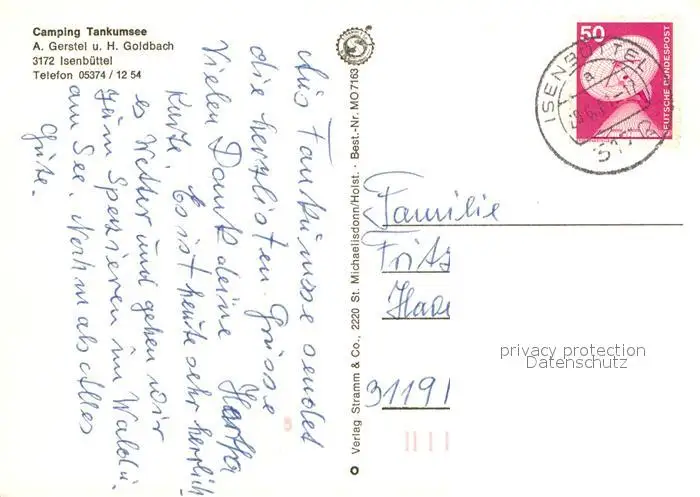 Camping Tankumsee
A. Gerstel u. H. Goldbach
3172 Isenbüttel
Telefon 05374 / 12 54
Aus Tankumsee sendet
die herzlisten Grüsse
Vielen Dank deine
Karte. Es ist heute sehr herrlich
es Wetter und gehen wir
zum Spazieren im Wald u.
am See. Nochmals Alles
Gute.
Verlag Stramm & Co., 2220 St. Michaelisdonn/Holst. · Best.-Nr. MO 7163
50
DEUTSCHE BUNDESPOST
ISENBÜTTEL
a
Familie
Fritz
31191
privacy protection
Datenschutz